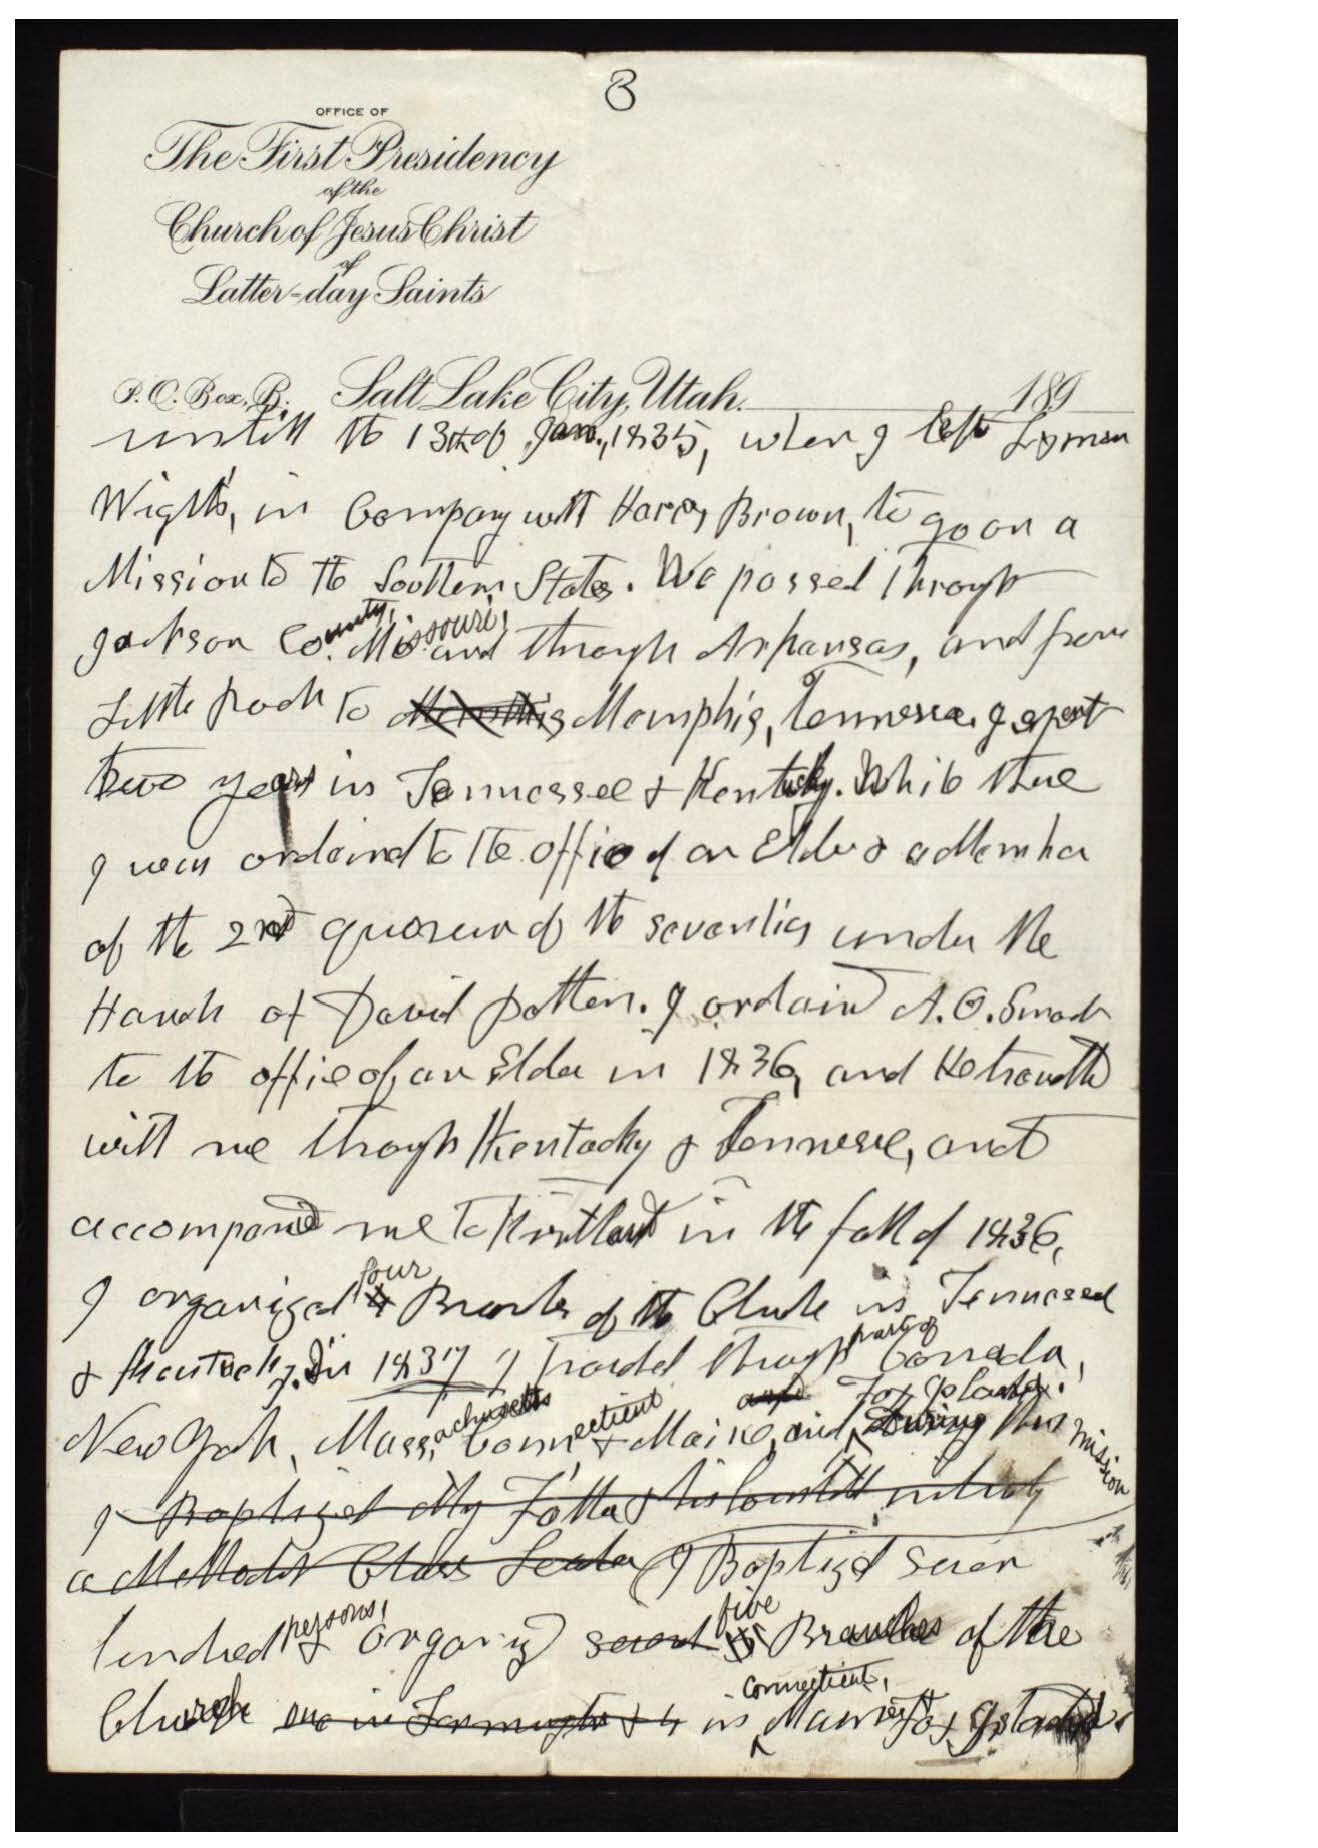 3
OFFICE OF
The First Presidency
of the
Church of Jesus Christ
of
Latter-day Saints
P.O. Box, B. Salt Lake City, Utah. 189
untill the 13th of Jan., 1835, when I left Lyman
Wights, in Company with Harry Brown, to go on a
Mission to the Southern States. We passed through
Jackson County, Missouri, and through Arkansas, and from
Little Rock to Memphis, Tennessee. I spent
two years in Tennessee & Kentucky. While there
I was ordained to the office of an Elder & a Member
of the 2nd quorum of the seventies under the
Hands of David Patten. I ordaind A. O. Smoot
to the office of an Elder in 1836, and He travelled
with me through Kentucky & Tennessee, and
accompanied me to Kirtland in the fall of 1836,
I organized four Branches of the Church in Tennessee
& Kentucky. In 1837 I traveled through part of Canada,
New York, Massachusetts Connecticut & Maine, and Fox Islands. During this mission
I Baptized My Father & his household, including
a Methodist Class Leader I Baptized Seven
hundred persons, & organized several five Branches of the
Church one in Farmington & 4 in Connecticut, Maine & Fox Islands.